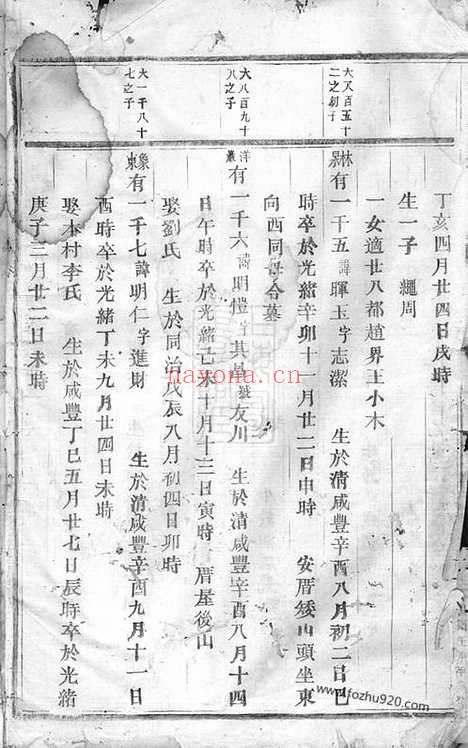 丁亥四月廿四日戌時
生一子 繩周
一女適廿八都趙界王小木
大又百五十
二之初子
林
有一千五諱暉玉字志潔 生於清咸豐辛酉八月初二日巳
時卒於光緒辛卯十一月廿二日申時 安厝矮山頭坐東
向西同母合墓
大八百九十
八之子
洋叢
有一千六諱明禮字其 號友川 生於清咸豐辛酉八月十四
日午時卒於光緒己未十月十三日寅時 厝屋後山
娶劉氏 生於同治戊辰八月初四日卯時
大一千八十
七之子
有一千七諱明仁字進財 生於清咸豐辛酉九月十一日
酉時卒於光緒丁未九月廿四日未時
娶本村李氏 生於咸豐丁巳五月廿七日辰時卒於光緒
庚子三月廿二日未時
nayona.cn
www.fozhu920.com